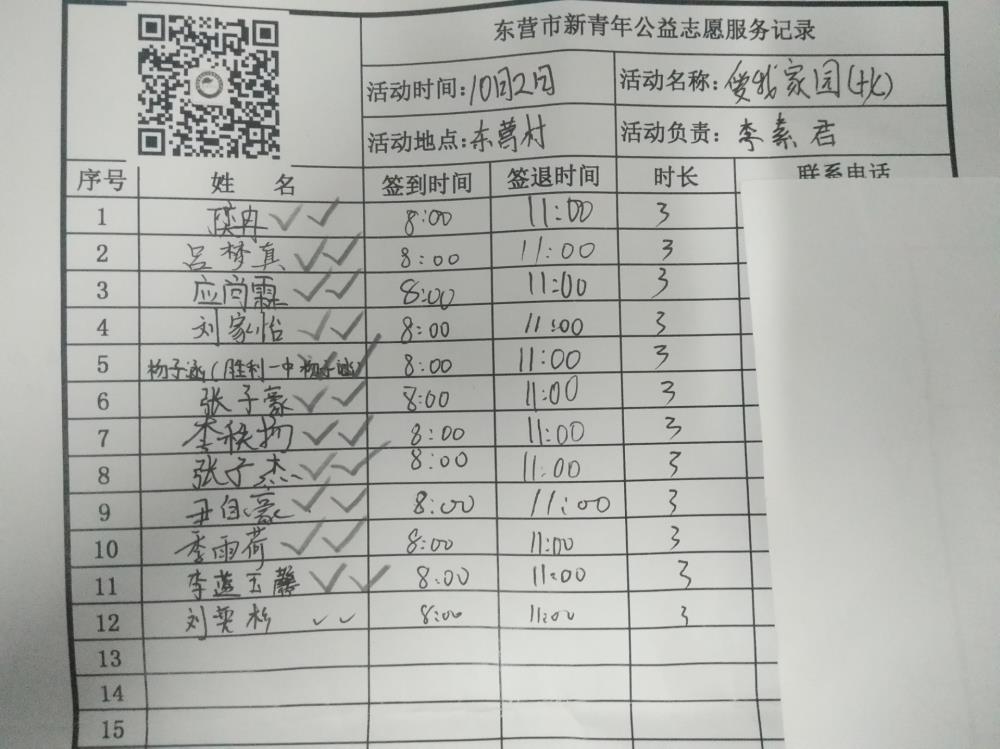 东营市新青年公益志愿服务记录
活动时间:10月2日 活动名称:爱我家园(北)
活动地点:东营村 活动负责:李素君
序号 姓 名 签到时间 签退时间 时长 联系电话
1 冉 8:00 11:00 3
2 吕梦真 8:00 11:00 3
3 应尚霖 8:00 11:00 3
4 刘家怡 8:00 11:00 3
5 杨子涵(胜利一中杨子涵) 8:00 11:00 3
6 张子豪 8:00 11:00 3
7 李 8:00 11:00 3
8 张子杰 8:00 11:00 3
9 豪 8:00 11:00 3
10 季雨荷 8:00 11:00 3
11 李蓝玉馨 8:00 11:00 3
12 刘奕杉 8:00 11:00 3
13
14
15